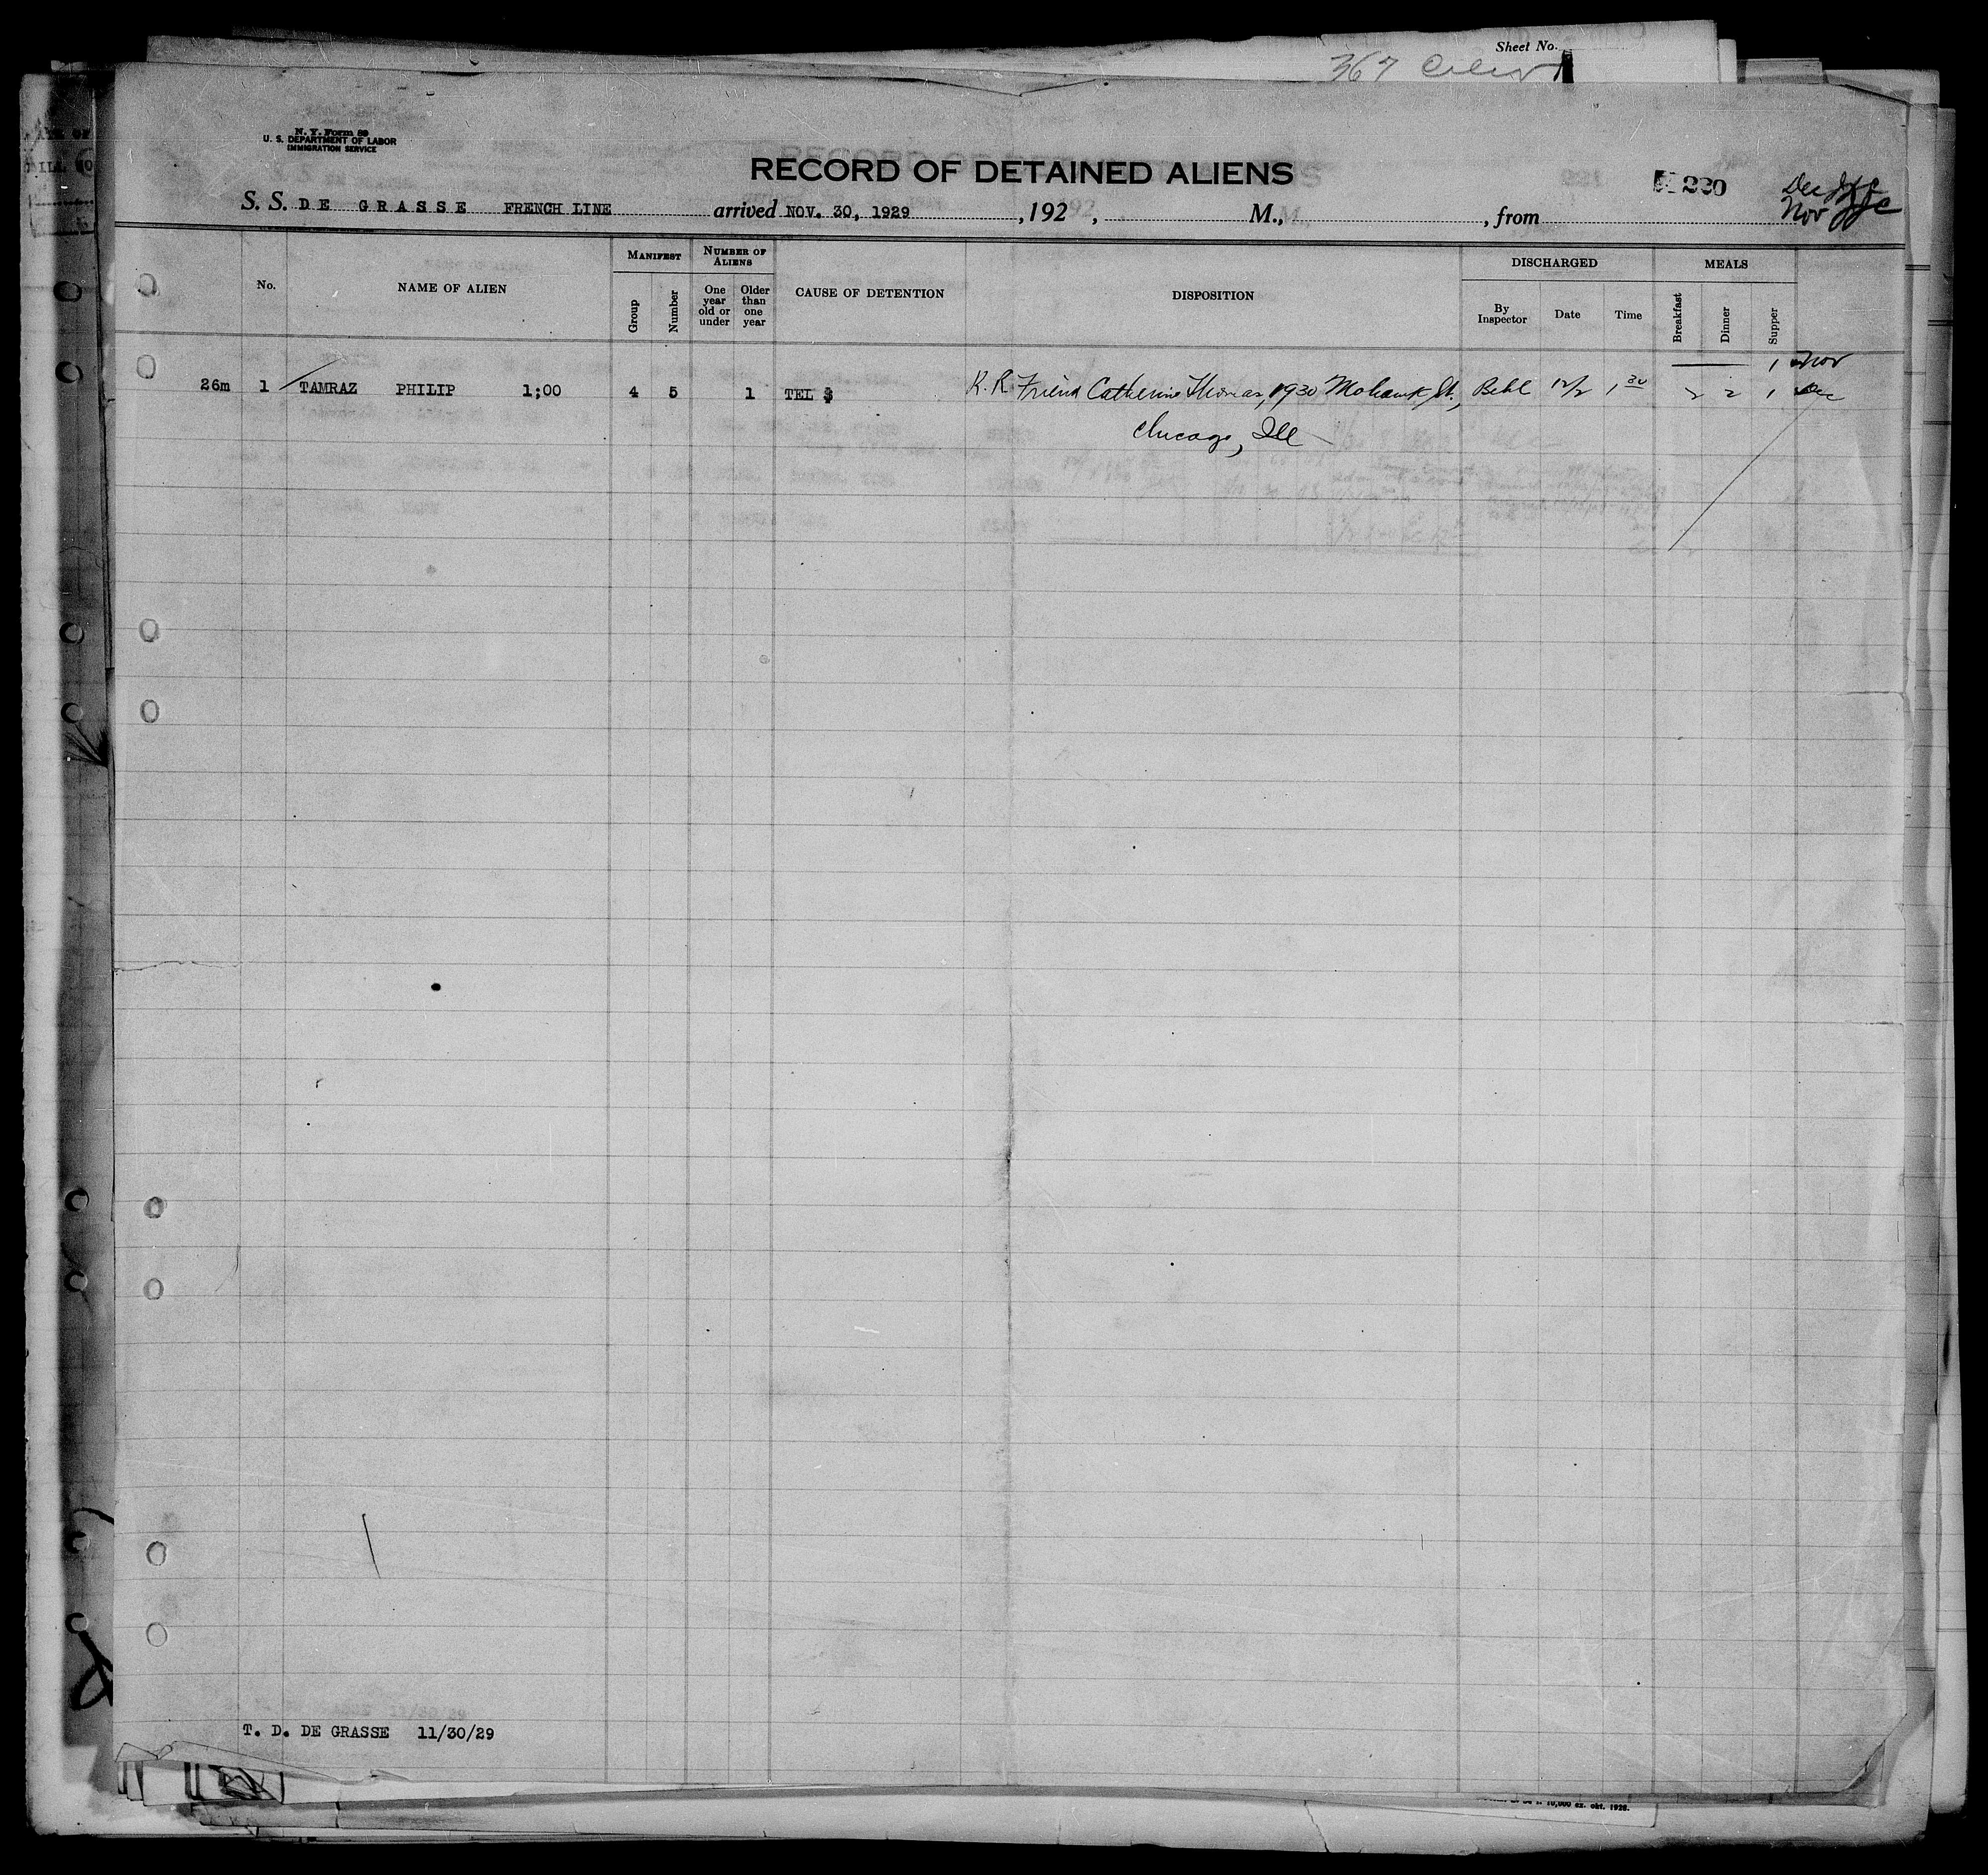 Sheet No.
367
N. Y. Form 89
U. S. DEPARTMENT OF LABOR
IMMIGRATION SERVICE
RECORD OF DETAINED ALIENS
220
Dec
S. S. DE GRASSE FRENCH LINE arrived NOV. 30, 1929 , 192 , M., , from Nov
No. NAME OF ALIEN MANIFEST Group Number NUMBER OF ALIENS One year old or under Older than one year CAUSE OF DETENTION DISPOSITION DISCHARGED By Inspector Date Time MEALS Breakfast Dinner Supper
1 Nov
26m 1 TAMRAZ PHILIP 1;00 4 5 1 TEL $ R.R. Friend Catherine Thomas, 1930 Mohawk St., Behl 12/2 1 30 2 2 1 Dec
Chicago, Ill
T. D. DE GRASSE 11/30/29
10,000 ez. okt. 1928.